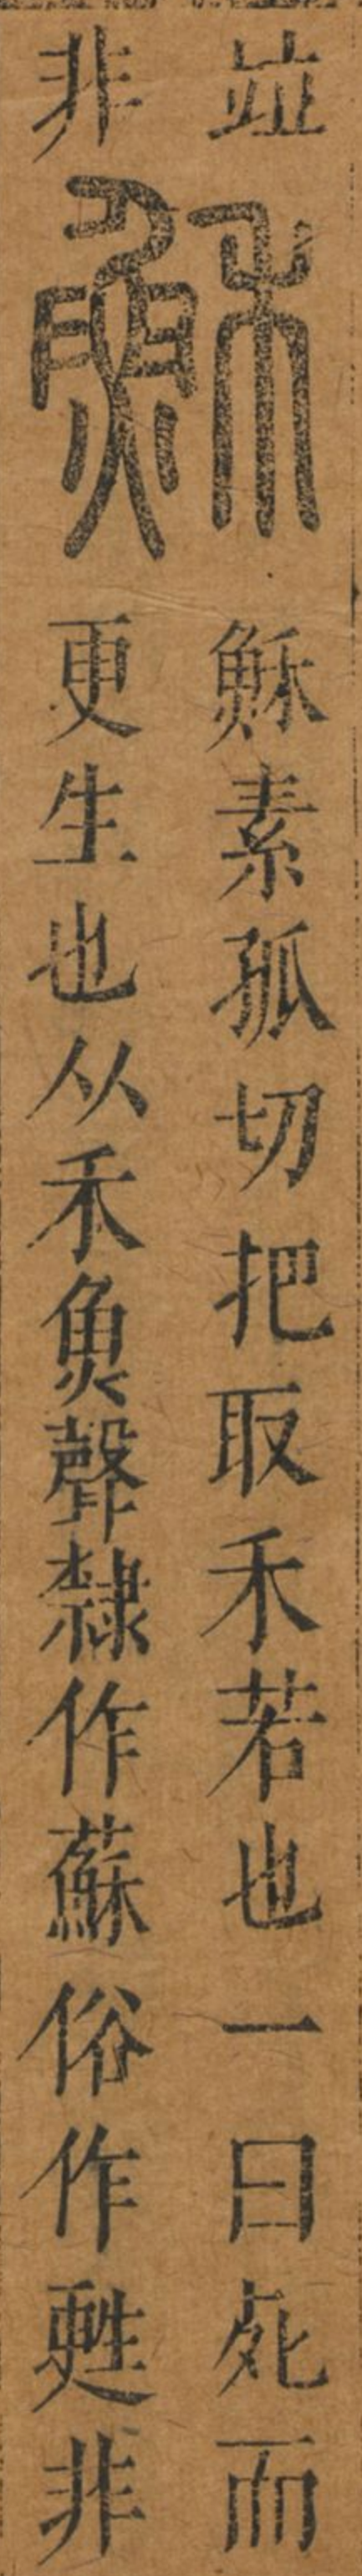 竝
非
穌
穌素孤切把取禾若也一曰死而
更生也从禾魚聲隸作蘇俗作甦非